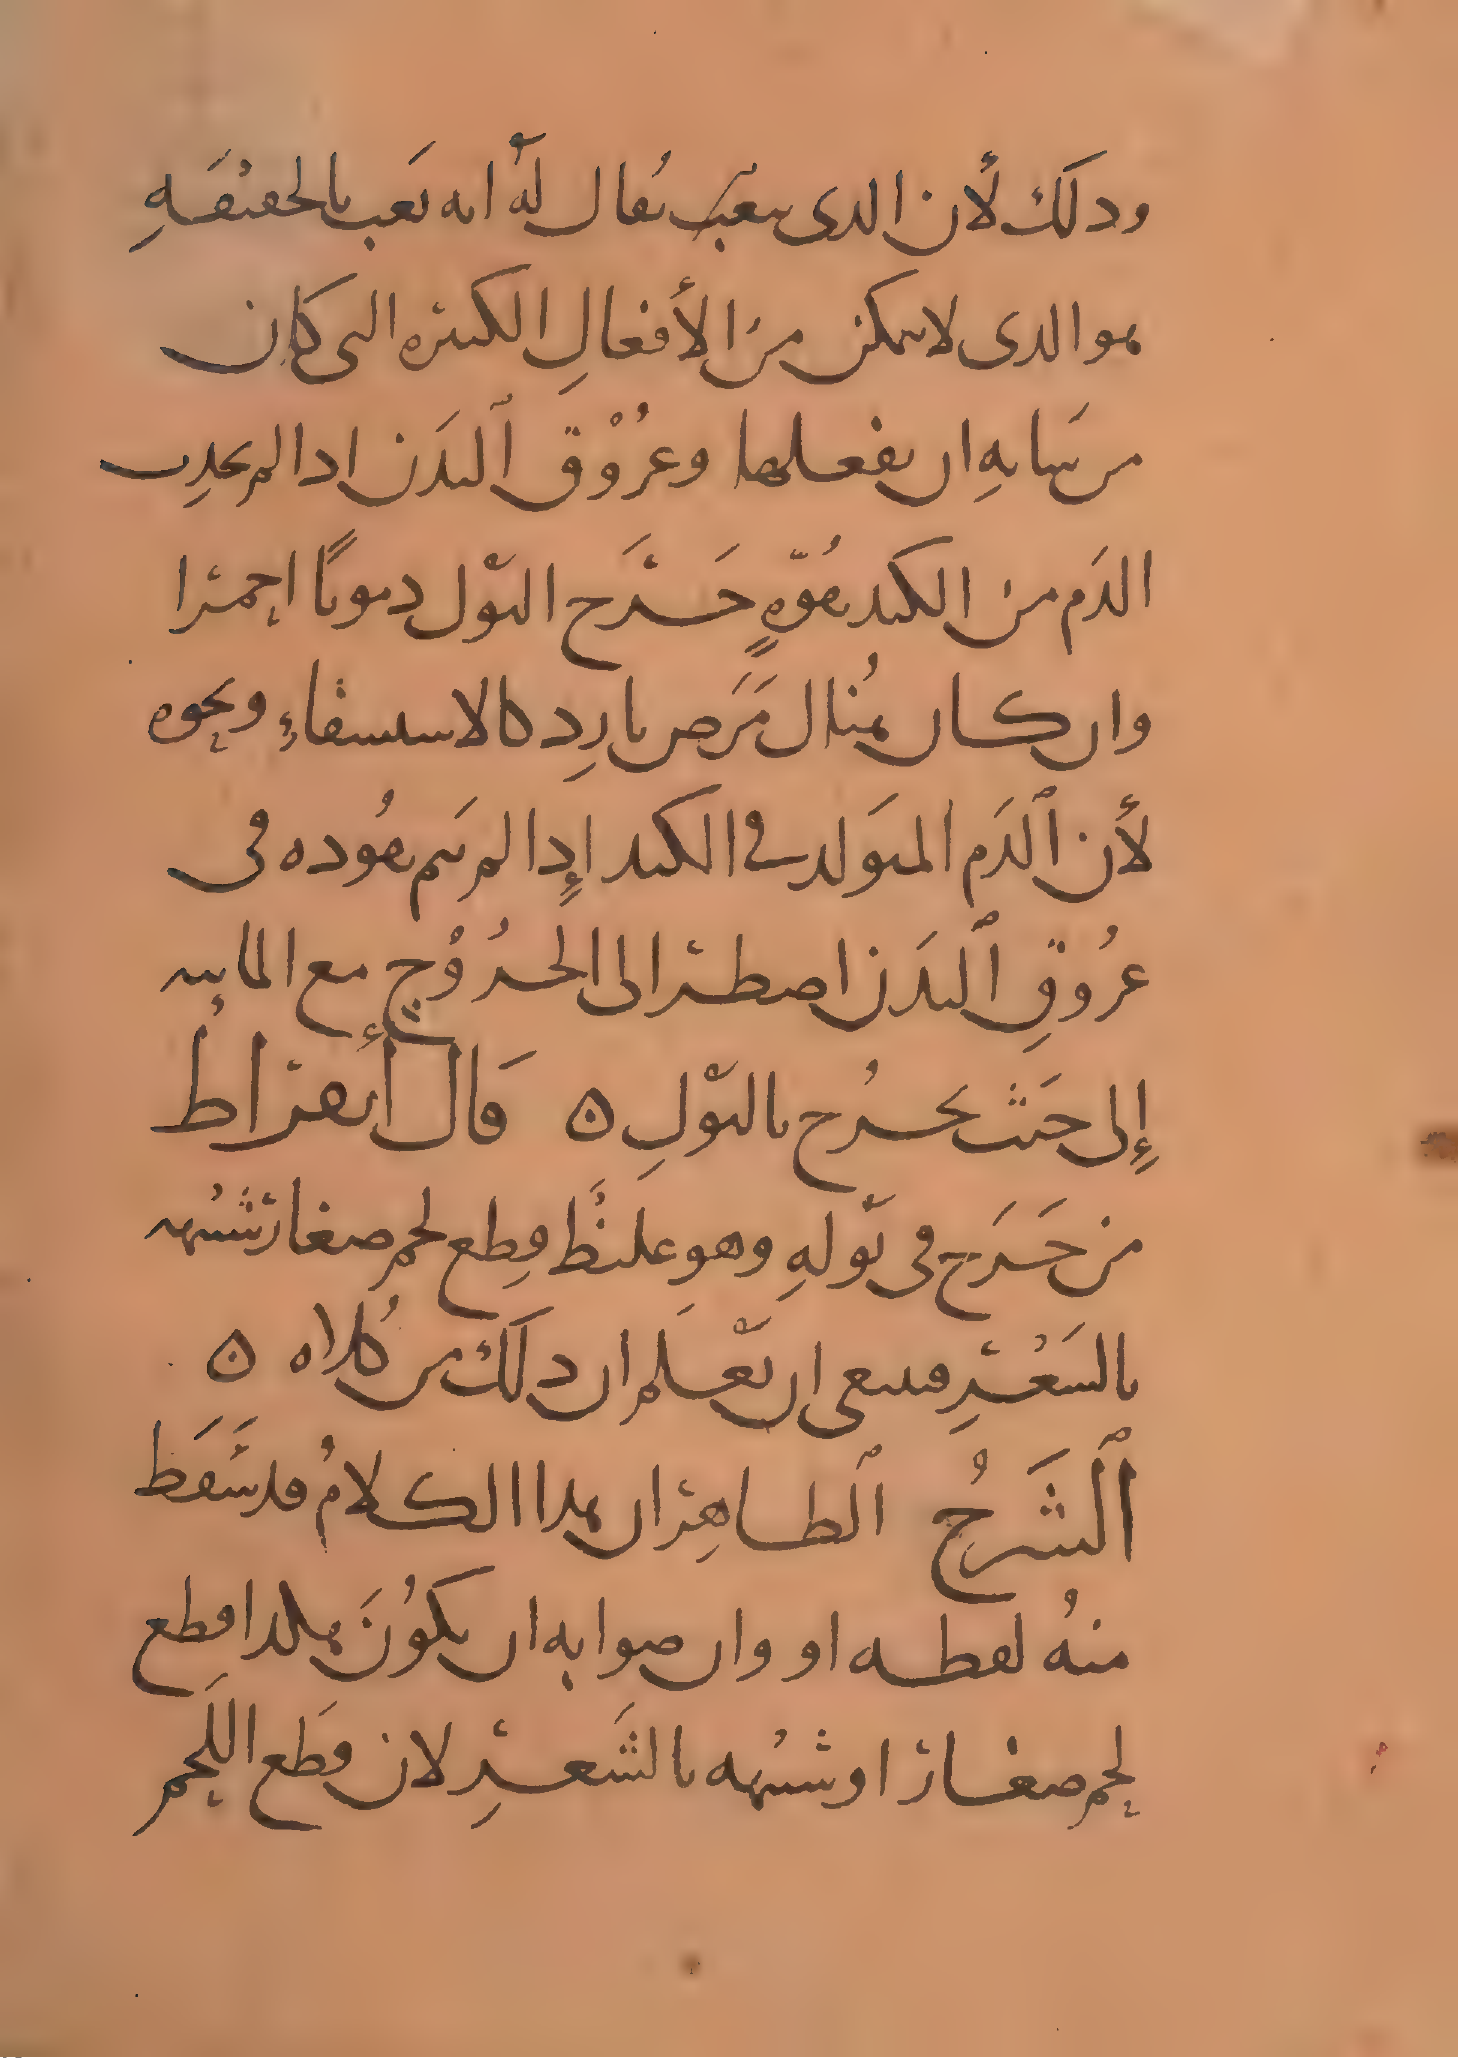 وذلك لأن الذى يتعب يقال له انه تعب بالحقيقه
هو الذى لا يمكن من الأفعال الكثيره التى كان
من شانه ان يفعلها وعروق البدن اذا لم يجذب
الدم من الكبد بقوه خرج البول دمويا احمرا
وان كان بمنال مرض بارد كالاستسقاء ونحوه
لأن الدم المتولد فى الكبد إذا لم يتم نفوده فى
عروق البدن اضطر الى الخروج مع المائيه
إلى حيث يخرج بالبول ه قال أبقراط
من خرج فى بوله وهو غليظ قطع لحم صغار شبيه
بالشعر فينبغى ان تعلم ان ذلك من كلاه ه
الشرح الظاهر ان هذا الكلام قد سقط
منه لفظه او وان صوابه ان يكون هكذا قطع
لحم صغار او شبيه بالشعر لان قطع اللحم